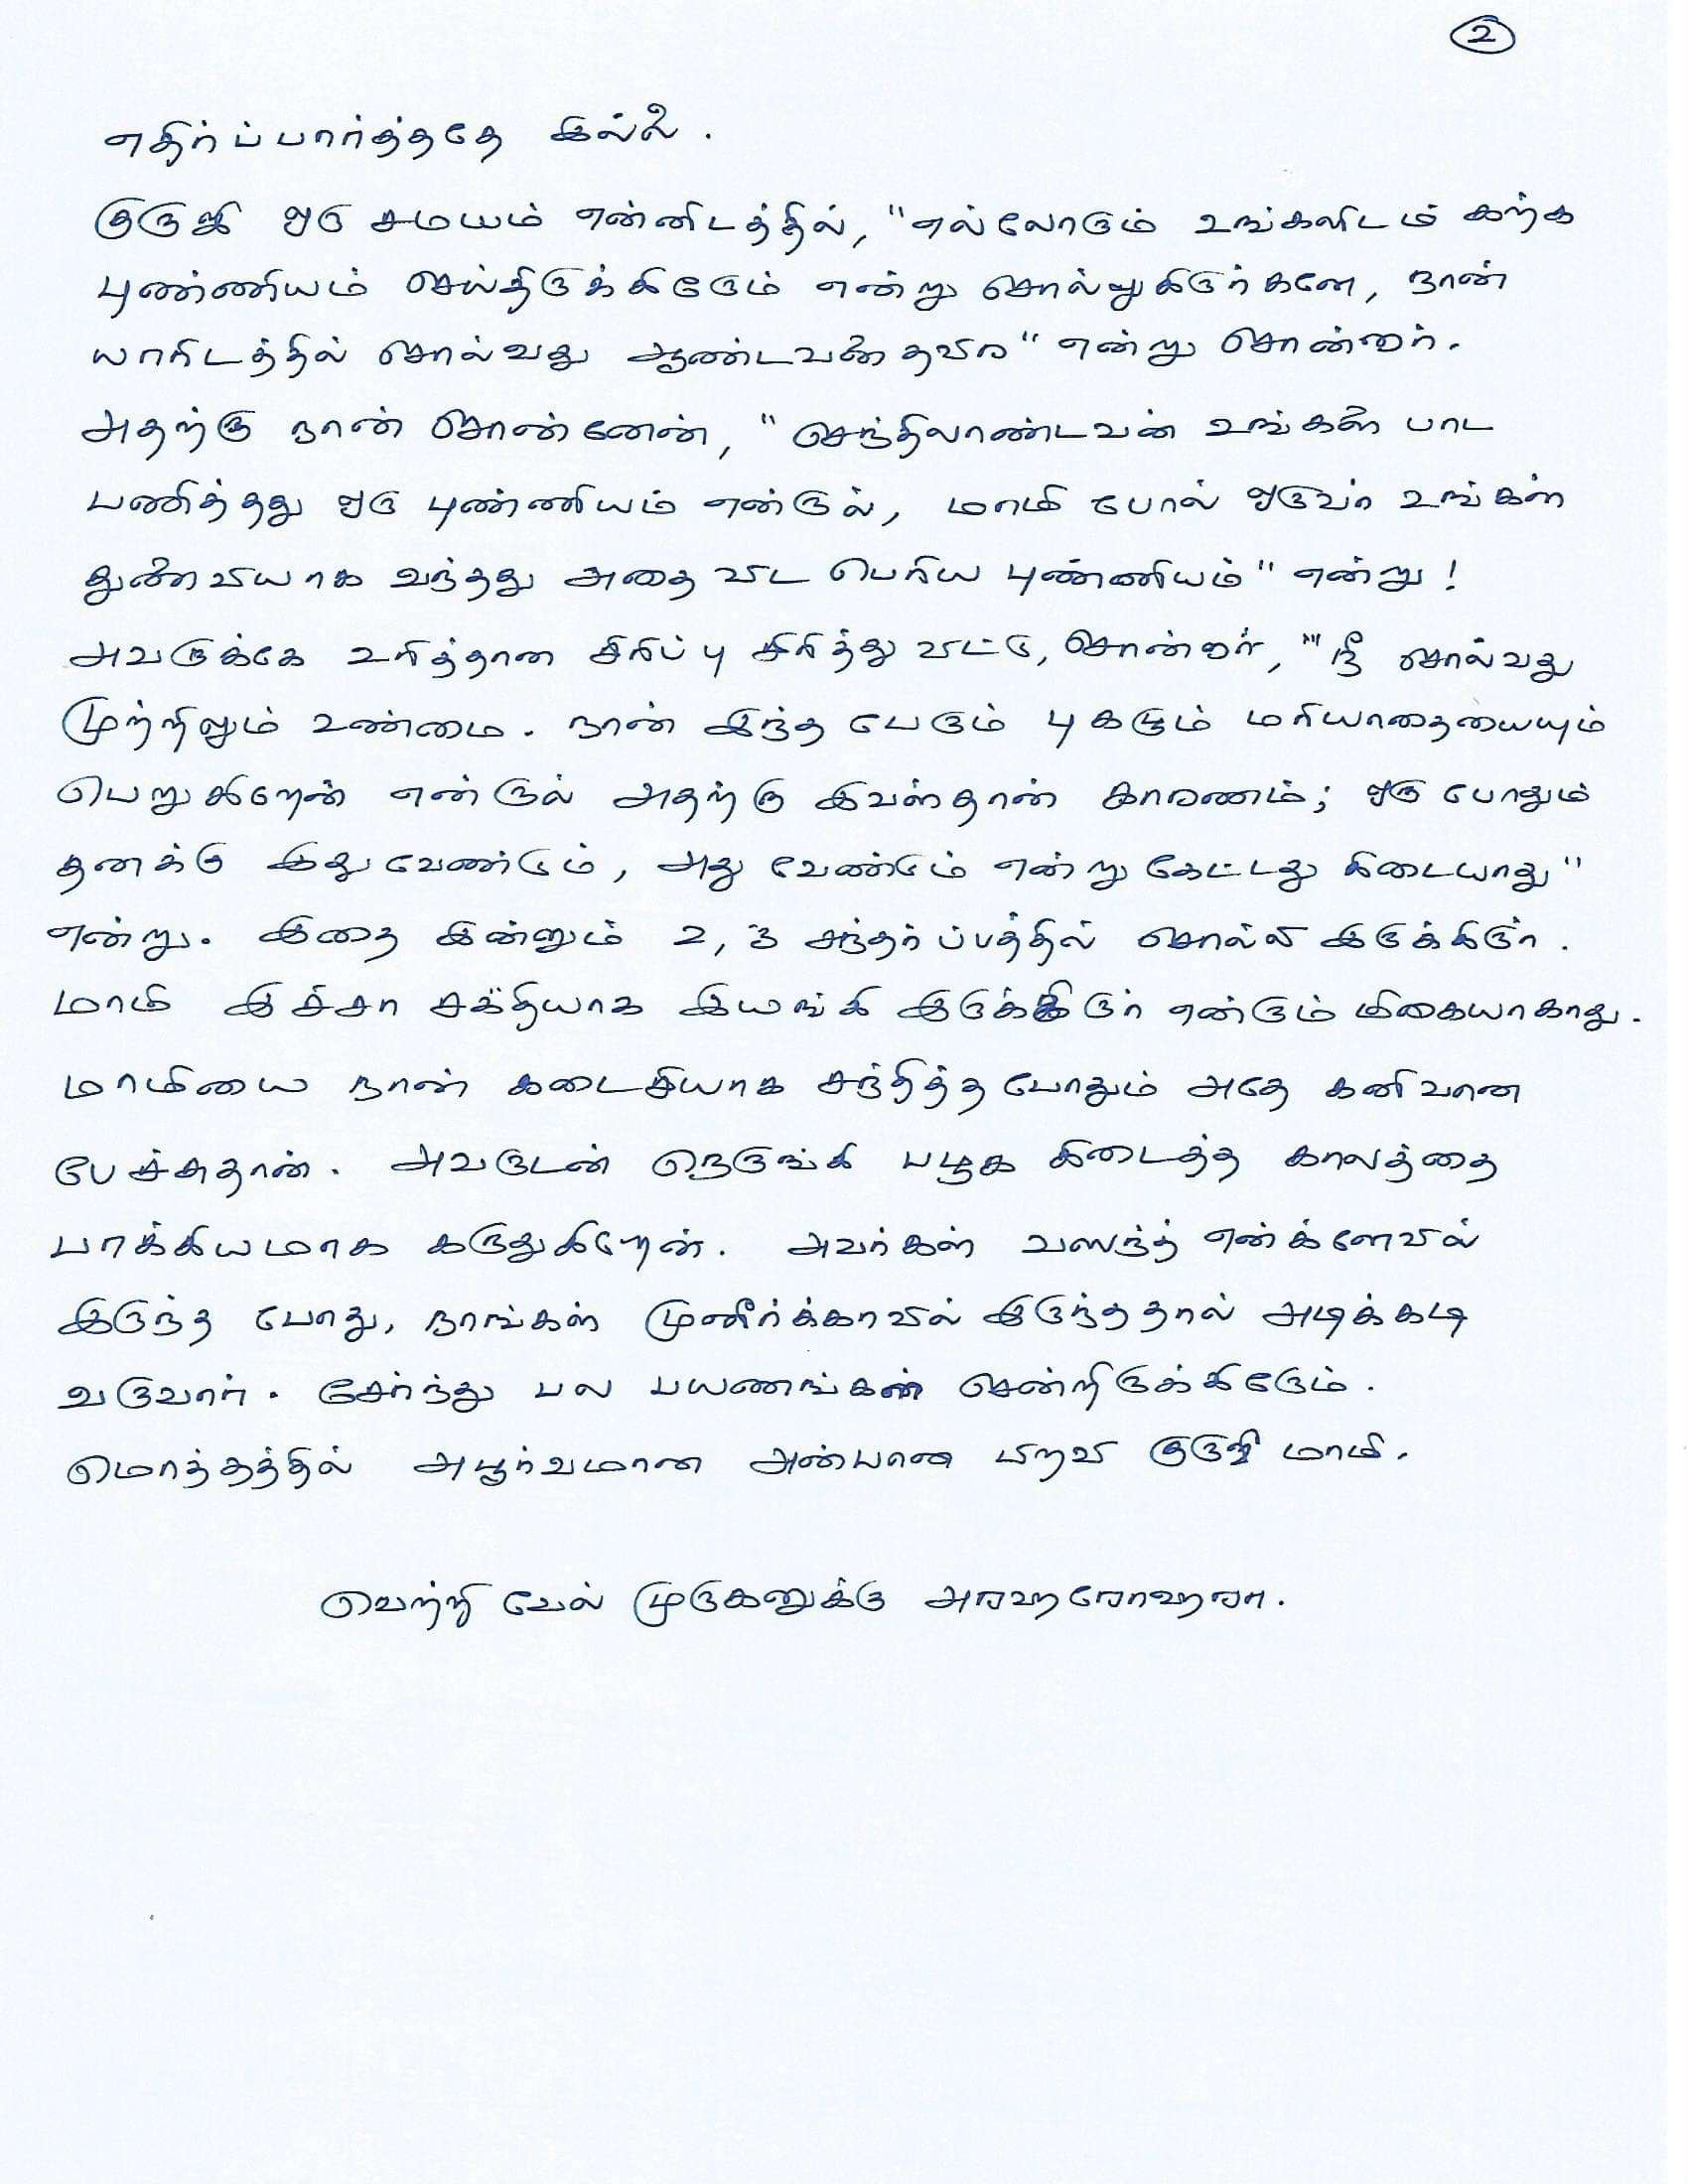 2
எதிர்ப்பார்த்ததே இல்லை.
குருஜி ஒரு சமயம் என்னிடத்தில், "எல்லோரும் உங்களிடம் கற்க
புண்ணியம் செய்திருக்கிறோம் என்று சொல்லுகிறார்களே, நான்
யாரிடத்தில் சொல்வது ஆண்டவனைதவிர" என்று சொன்னார்.
அதற்கு நான் சொன்னேன், "செந்திலாண்டவன் உங்களை பாட
பணித்தது ஒரு புண்ணியம் என்றால், மாமி போல் ஒருவர் உங்கள்
துணைவியாக வந்தது அதை விட பெரிய புண்ணியம்" என்று!
அவருக்கே உரித்தான சிரிப்பு சிரித்து விட்டு, சொன்னார், "நீ சொல்வது
முற்றிலும் உண்மை. நான் இந்த பேரும் புகழும் மரியாதையையும்
பெறுகிறேன் என்றால் அதற்கு இவள்தான் காரணம்; ஒரு போதும்
தனக்கு இது வேண்டும், அது வேண்டும் என்று கேட்டது கிடையாது"
என்று. இதை இன்னும் 2, 3 சந்தர்ப்பத்தில் சொல்லி இருக்கிறார்.
மாமி இச்சா சக்தியாக இயங்கி இருக்கிறார் என்றும் மிகையாகாது.
மாமியை நான் கடைசியாக சந்தித்த போதும் அதே கனிவான
பேச்சுதான். அவருடன் நெருங்கி பழக கிடைத்த காலத்தை
பாக்கியமாக கருதுகிறேன். அவர்கள் வஸந்த் என்க்ளேவில்
இருந்த போது, நாங்கள் முனீர்க்காவில் இருந்ததால் அடிக்கடி
வருவார். சேர்ந்து பல பயணங்கள் சென்றிருக்கிறோம்.
மொத்தத்தில் அபூர்வமான அன்பான பிறவி குருஜி மாமி.
வெற்றி வேல் முருகனுக்கு அரஹரோஹரா.